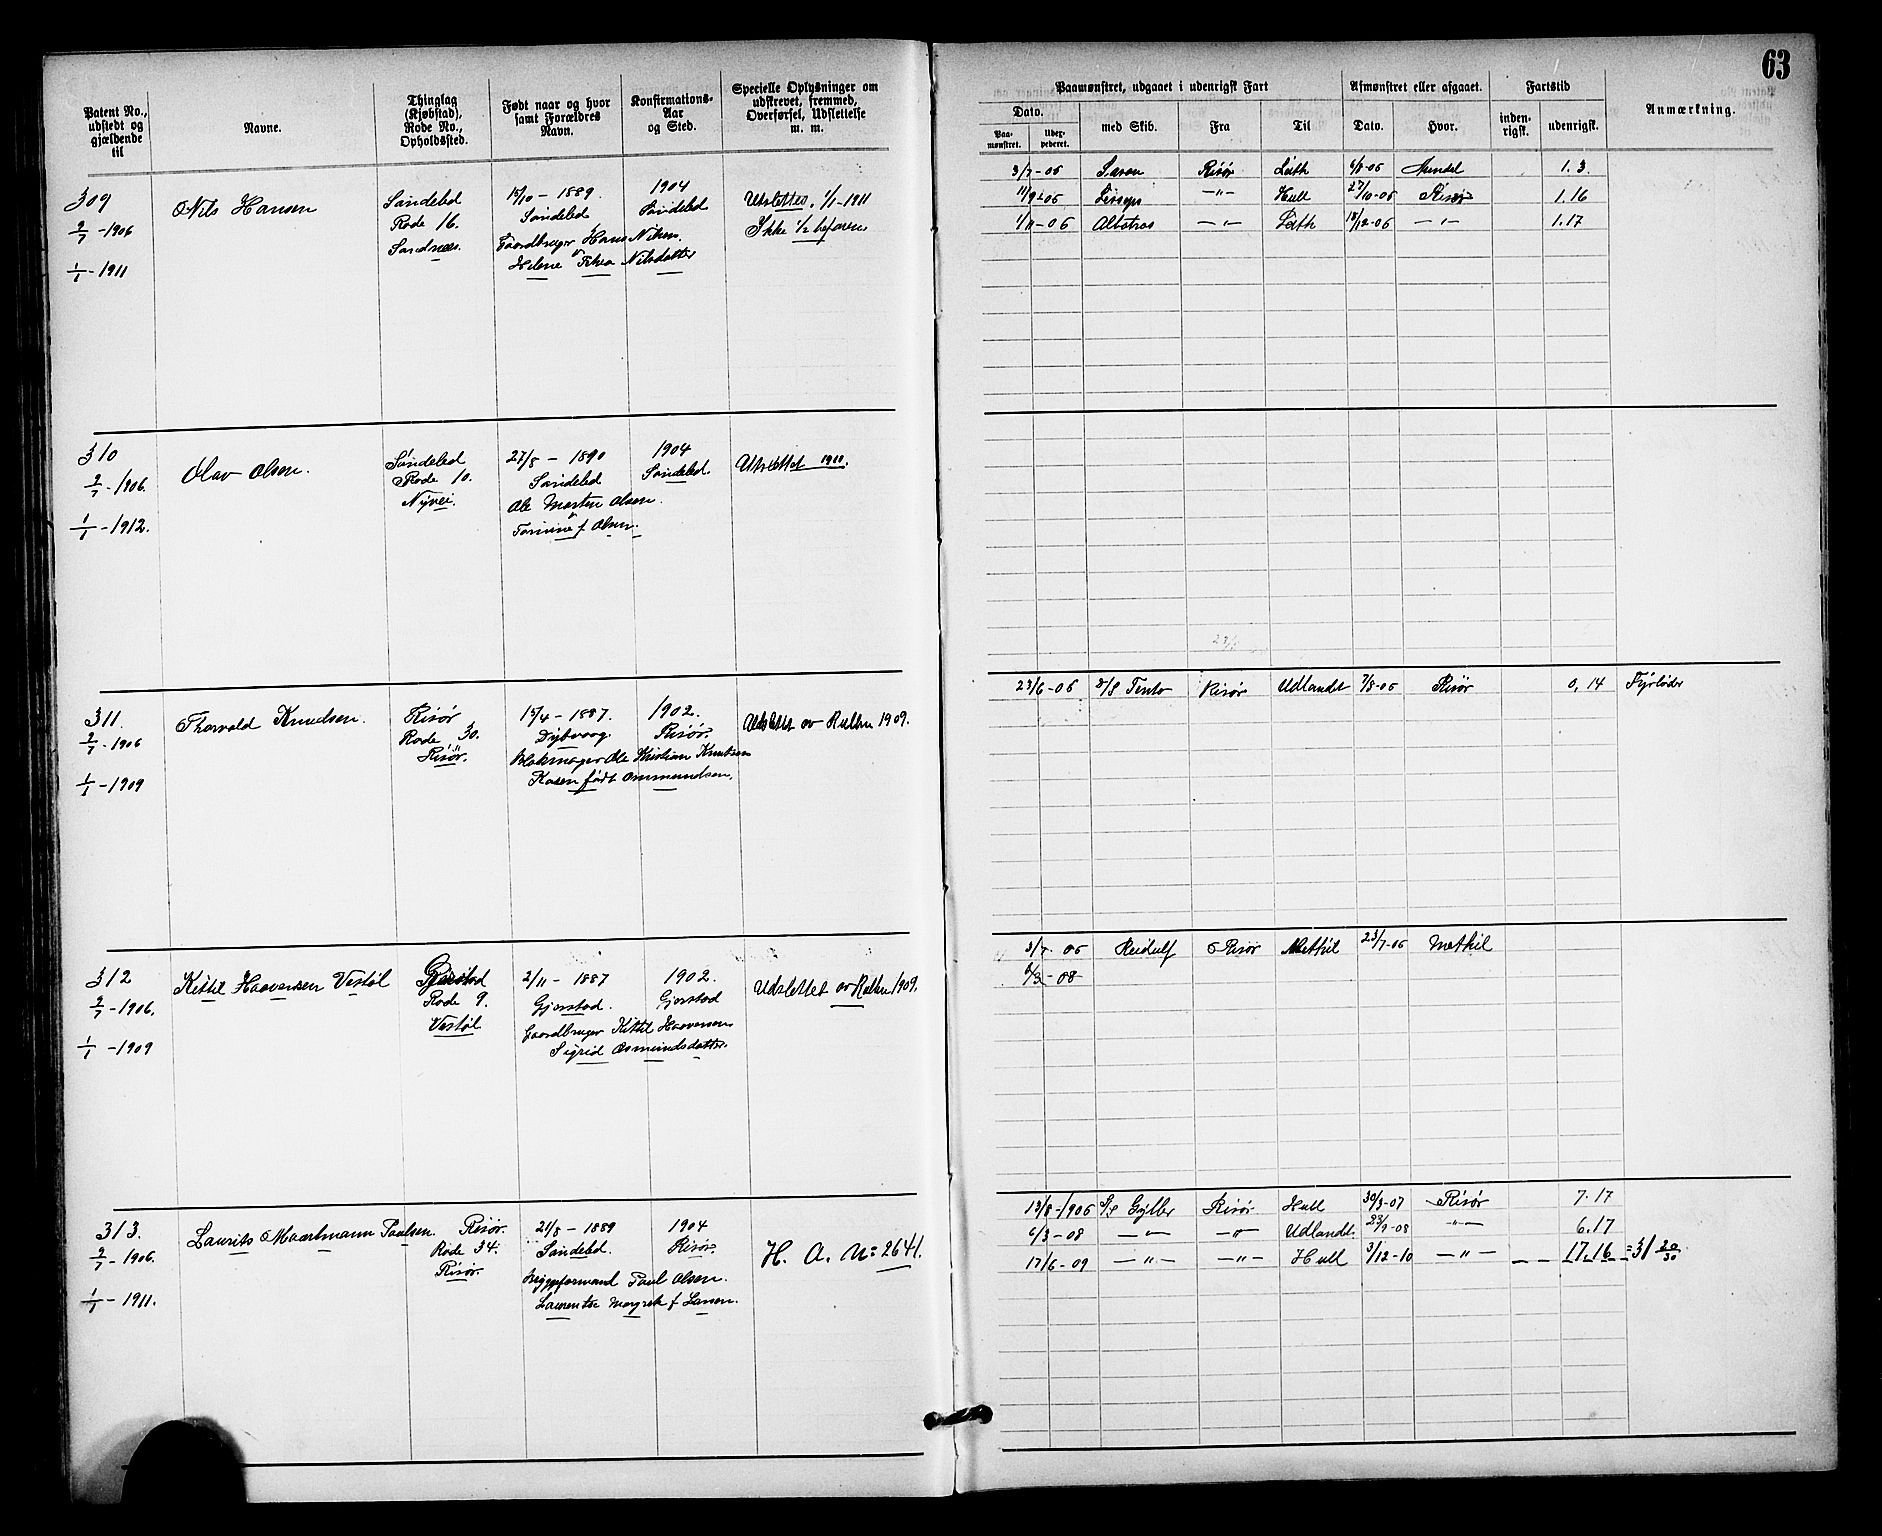 63
Patent No., udstedt og gjældende til
Navne.
Thinglag (Kjøbstad), Rode No., Opholdssted.
Født naar og hvor samt Forældres Navn.
Konfirmations-Aar og Sted.
Specielle Oplysninger om udskrevet, fremmed, Overførsel, Udslettelse m. m.
Paamønstret, udgaaet i udenrigsk Fart
Afmønstret eller afgaaet.
Fartstid
Anmærkning.
Dato.
Paa-mønstret.
med Skib.
Fra
Til
Dato.
Hvor.
inden-rigsk.
udenrigsk.
309
2/7 - 1906
1/1 - 1911
Nils Hansen
Søndeled
Rode 16.
Sandnæs.
15/10 - 1889.
Søndeled
Gaardbruger Hans Nilsen.
Helene Nilsdatter
1904
Søndeled
Udslettes. 1/1-1911
Ikke 1/2 befaren
3/7-06 Risør Leith 6/8-06 1.3.
11/9-06 -"- Hull 27/10-06 Risør 1.16
1/11-06 Albatros -"- Leith 18/12-06 -"- 1.17
310
2/7 - 1906.
1/1 - 1912.
Olav Olsen.
Søndeled
Rode 10.
Nyvei.
27/8 - 1890
Søndeled
Ole Morten Olsen.
f. Olsen.
1904
Søndeled.
Udslettet 1911.
311.
2/7 - 1906
1/1 - 1909
Thorvald Knudsen.
Risør
Rode 30.
Risør.
15/4 - 1887.
Dybvaag.
Blokmager Ole Kristian Knutsen
Karen født Ommundsen.
1902.
Risør.
Udslettet av Rullen 1909.
23/6-06 S/S Tento Risør Udlandet 7/8-06 Risør 0,14 Fyrbøder
312
2/7 - 1906.
1/1 - 1909
Kittil Haavorsen Vestøl
Gjerstad
Rode 9.
Vestøl
2/11 - 1887
Gjerstad.
Gaardbruger Kittil Haavorsen
Sigrid Osmundsdatter.
1902.
Gjerstad
Udslettet av Rullen 1909.
3/7-06 Reidulf Risør Methil 23/7-06 Methil
6/3-08
313.
2/7 - 1906.
1/1 - 1911.
Laurits Maartmann Paulsen.
Risør.
Rode 34.
Risør.
21/8 - 1889
Søndeled.
Bryggeformand Paul Olsen.
Laurentse Margrete f. Larsen.
1904
Risør.
H. A. No: 2641.
13/8-1906 S/S Gyller Risør Hull 30/3-07 Risør 7.17
6/3-08 -"- -"- Udlandet. 23/9-08 -"- 6.17
17/6-09 -"- -"- Hull 3/12-10 -"- 17.16 = 31 20/30